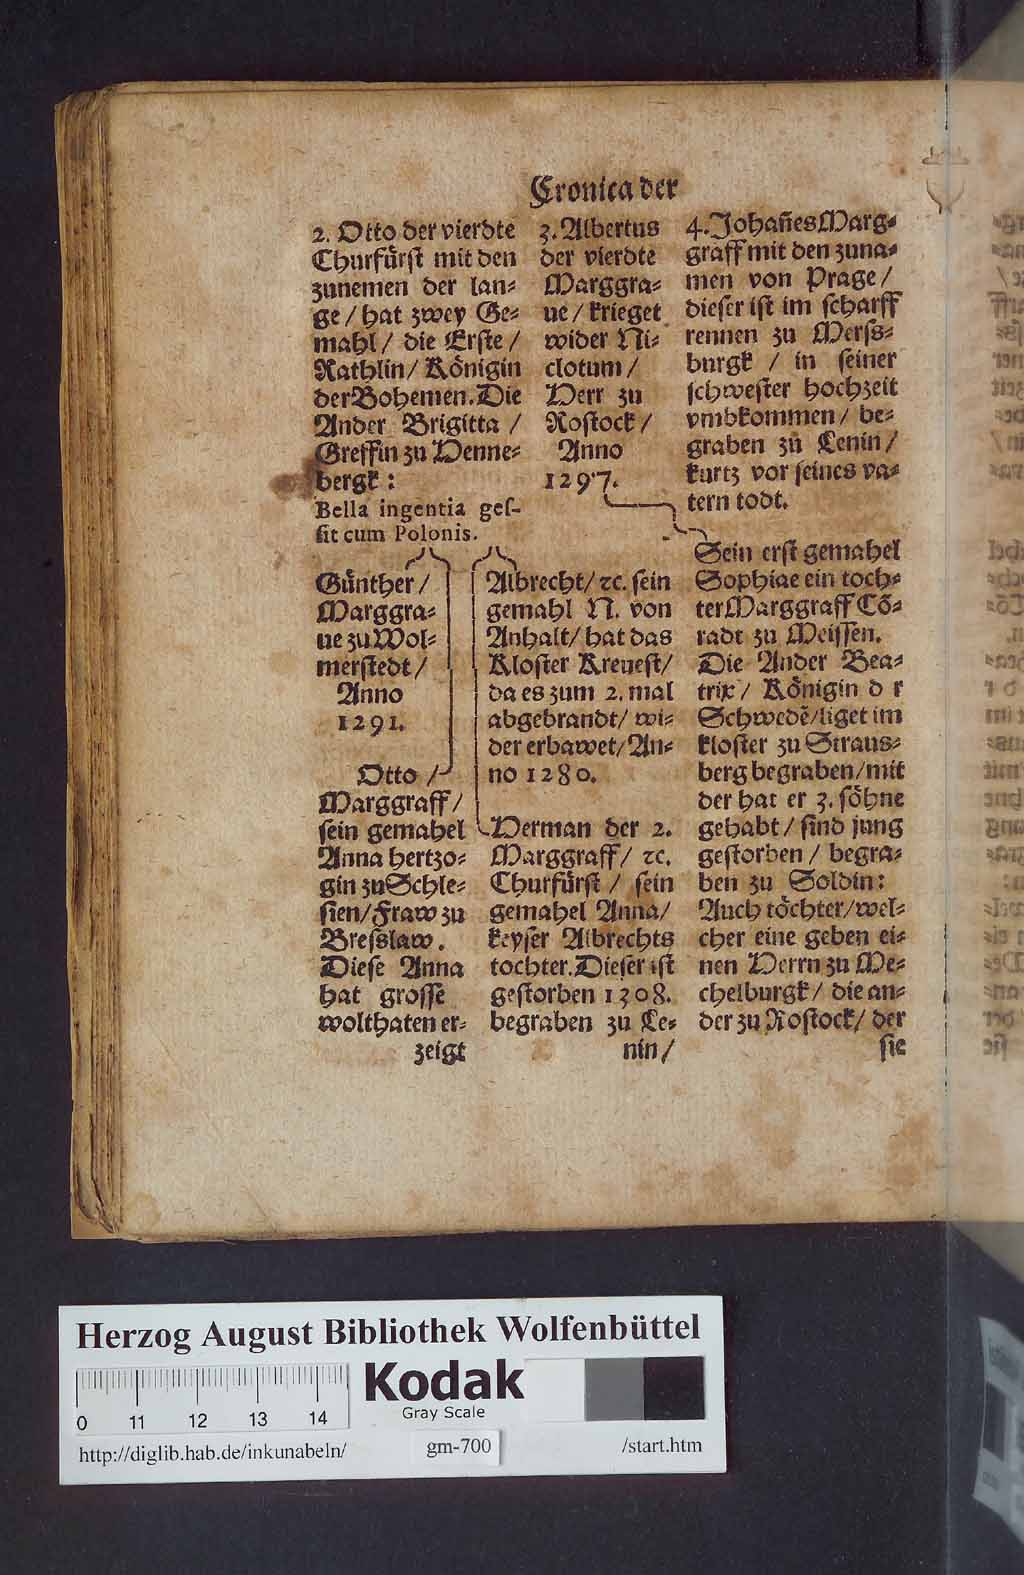 Cronica der
2. Otto der vierdte
Churfürst mit den
zunemen der lan-
ge / hat zwey Ge-
mahl / die Erste /
Rathlin / Königin
der Bohemen. Die
Ander Brigitta /
Greffin zu Henne-
bergk :
Bella ingentia ges-
sit cum Polonis.
3. Albertus
der vierdte
Marggra-
ue / krieget
wider Ni-
clotum /
Herr zu
Rostock /
Anno
1297.
4. Johañes Marg-
graff mit den zuna-
men von Prage /
dieser ist im scharff
rennen zu Merss-
burgk / in seiner
schwester hochzeit
vmbkommen / be-
graben zu Lenin /
kurtz vor seines va-
tern todt.
Günther /
Marggra-
ue zu Wol-
merstedt /
Anno
1291.
Otto /
Marggraff /
sein gemahel
Anna hertzo-
gin zu Schle-
sien / Fraw zu
Bresslaw.
Diese Anna
hat grosse
wolthaten er-
zeigt
Albrecht / ꝛc. sein
gemahl N. von
Anhalt / hat das
Kloster Kreuest /
da es zum 2. mal
abgebrandt / wi-
der erbawet / An-
no 1280.
Herman der 2.
Marggraff / ꝛc.
Churfürst / sein
gemahel Anna /
keyser Albrechts
tochter. Dieser ist
gestorben 1308.
begraben zu Le-
nin /
Sein erst gemahel
Sophiae ein toch-
ter Marggraff Cõ-
radt zu Meissen.
Die Ander Bea-
trix / Königin d r
Schwedẽ / liget im
kloster zu Straus-
berg begraben / mit
der hat er 3. söhne
gehabt / sind jung
gestorben / begra-
ben zu Soldin:
Auch töchter / wel-
cher eine geben ei-
nen Herrn zu Me-
chelburgk / die an-
der zu Rostock / der
sie
Herzog August Bibliothek Wolfenbüttel
0 11 12 13 14
Kodak
Gray Scale
http://diglib.hab.de/inkunabeln/ gm-700 /start.htm